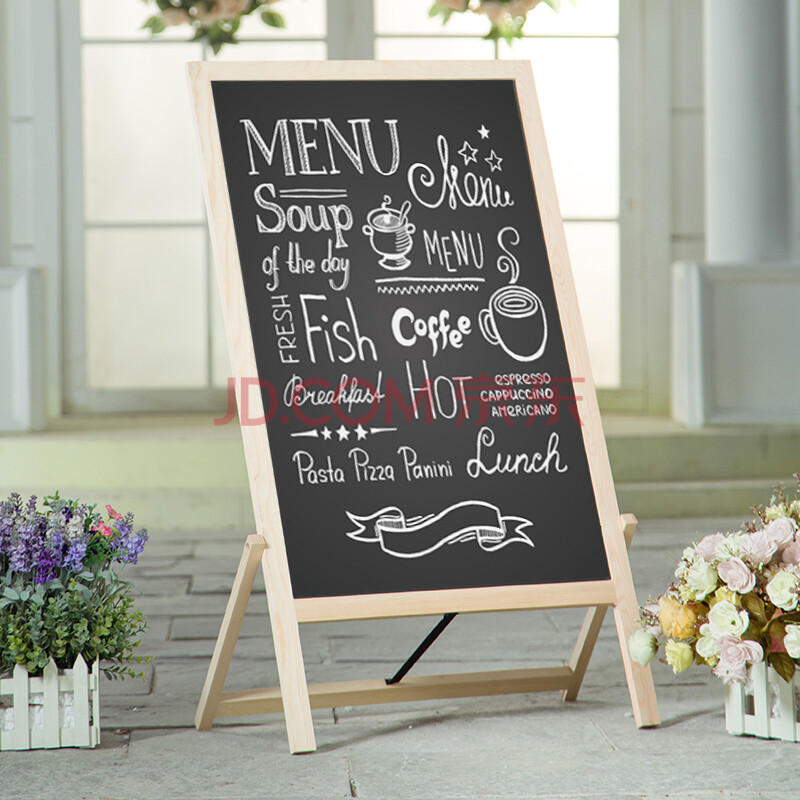 MENU
Menu
Soup
of the day
MENU
FRESH
Fish
Coffee
Breakfast
HOT
ESPRESSO
CAPPUCCINO
AMERICANO
JD.COM 京东
Pasta Pizza Panini
Lunch